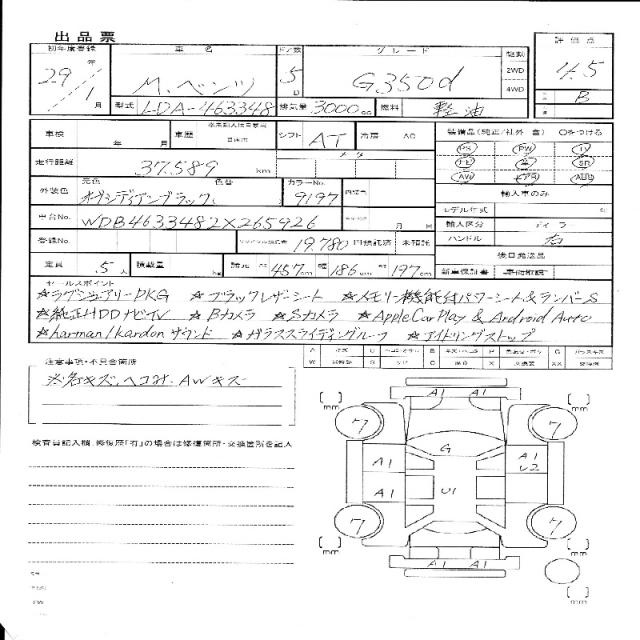 出品票
初年度登録 車名 ドア数 グレード 駆動 評価点
29年 1月 M.ベンツ 5D G350d 2WD 4WD 4.5
型式 LDA-463348 排気量 3000cc 燃料 軽油 B
車検 年 月 車歴 シフト AT 冷房 AC 装備品(純正/社外 含) ○をつける
走行距離 37.589km PS PW
AW
外装色 元色 オブシディアンブラック 色替 カラーNo. 9197 輸入車のみ
モデル年式
車台No. WDB4633482X265926 輸入区分 ディーラ
登録No. 19.780 円預託済 未預託 ハンドル 右
定員 5人 積載量 kg 諸元 457cm 幅 186cm 197cm 新車保証書
後日発送品
セールスポイント
☆ラグジュアリーPKG ☆ブラックレザーシート ☆メモリー機能付パワーシート&ランバーS
☆純正HDDナビTV ☆Bカメラ ☆Sカメラ ☆Apple Car Play & Android Auto
☆harman/kardonサウンド ☆ガラススライディングルーフ ☆アイドリングストップ
注意事項・不具合箇所
※各キズ、ヘコみ、AWキズ
検査員記入欄 修復歴「有」の場合は修復箇所・交換箇所を記入
A1 A1
7 7
G
A1 A1
U2
A1 U1
7 7
A1 A1
mm mm
mm mm